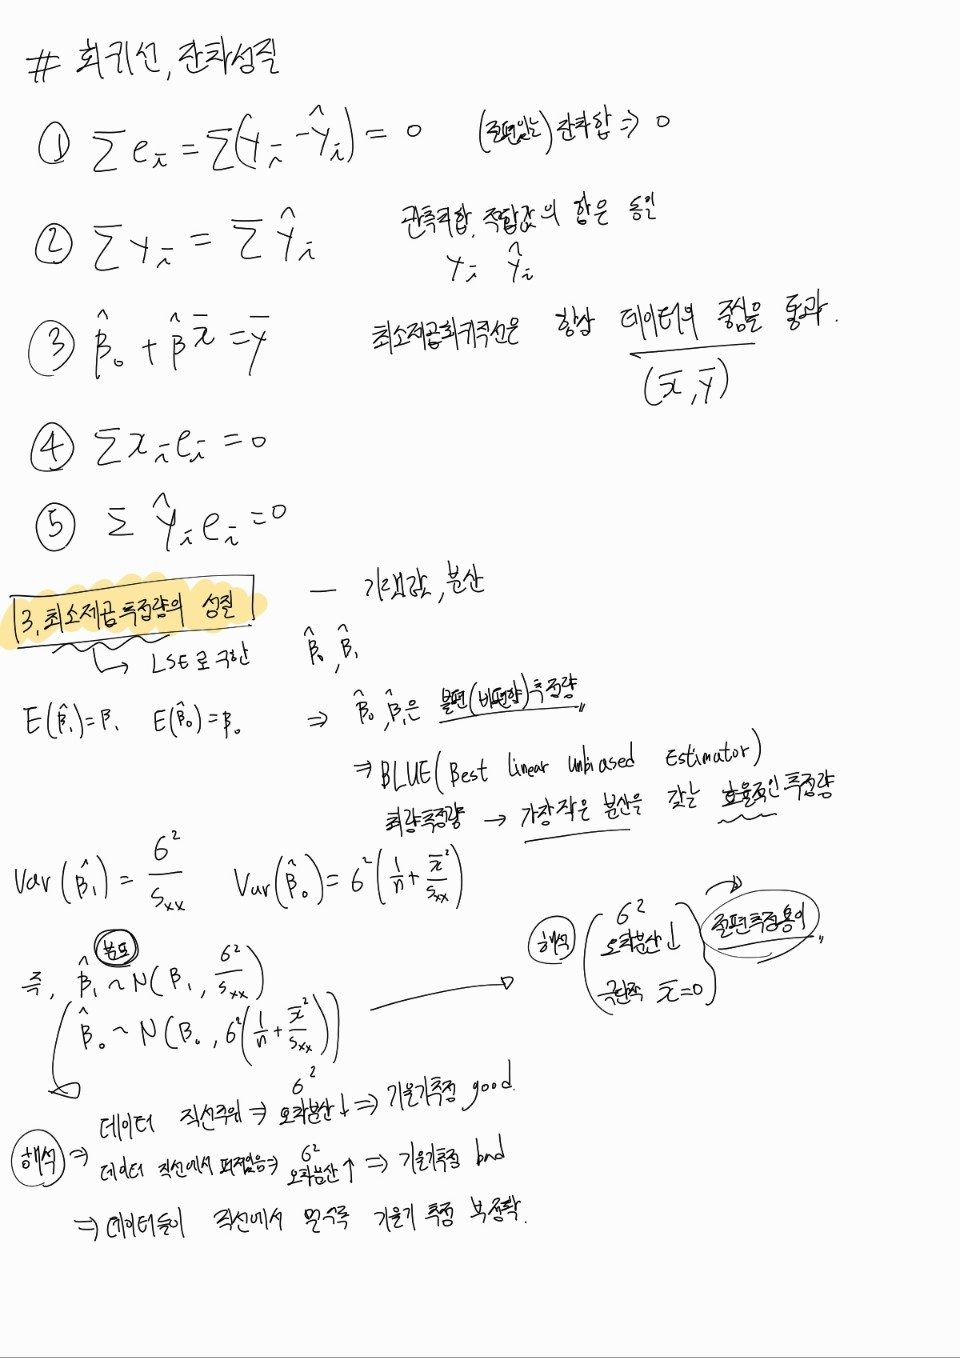 # 회귀선, 잔차성질
① Σei = Σ(yi - ŷi) = 0 (절편있는) 잔차합 ⇒ 0
② Σyi = Σŷi 관측치합, 적합값의 합은 동일
yi ŷi
③ β̂₀ + β̂x̄ = ȳ 최소제곱회귀직선은 항상 데이터의 중심을 통과.
(x̄, ȳ)
④ Σxiei = 0
⑤ Σŷiei = 0
3. 최소제곱추정량의 성질 — 기댓값, 분산
↳ LSE로 구한 β̂₀, β̂₁
E(β̂₁) = β₁ E(β̂₀) = β₀ ⇒ β̂₀, β̂₁은 불편(비편향)추정량
⇒ BLUE (Best linear unbiased Estimator)
최량추정량 → 가장작은 분산을 갖는 효율적인 추정량
Var(β̂₁) = σ²/Sxx Var(β̂₀) = σ²(1/n + x̄²/Sxx)
분포
즉, β̂₁ ~ N(β₁, σ²/Sxx)
β̂₀ ~ N(β₀, σ²(1/n + x̄²/Sxx))
해석 (σ² 오차분산↓ 극단적 x̄=0) → 절편추정용이
해석 ⇒ 데이터 직선주위 ⇒ σ² 오차분산↓ ⇒ 기울기추정 good.
데이터 직선에서 퍼져있음 ⇒ σ² 오차분산↑ ⇒ 기울기추정 bad
⇒ 데이터들이 직선에서 멀수록 기울기 추정 부정확.